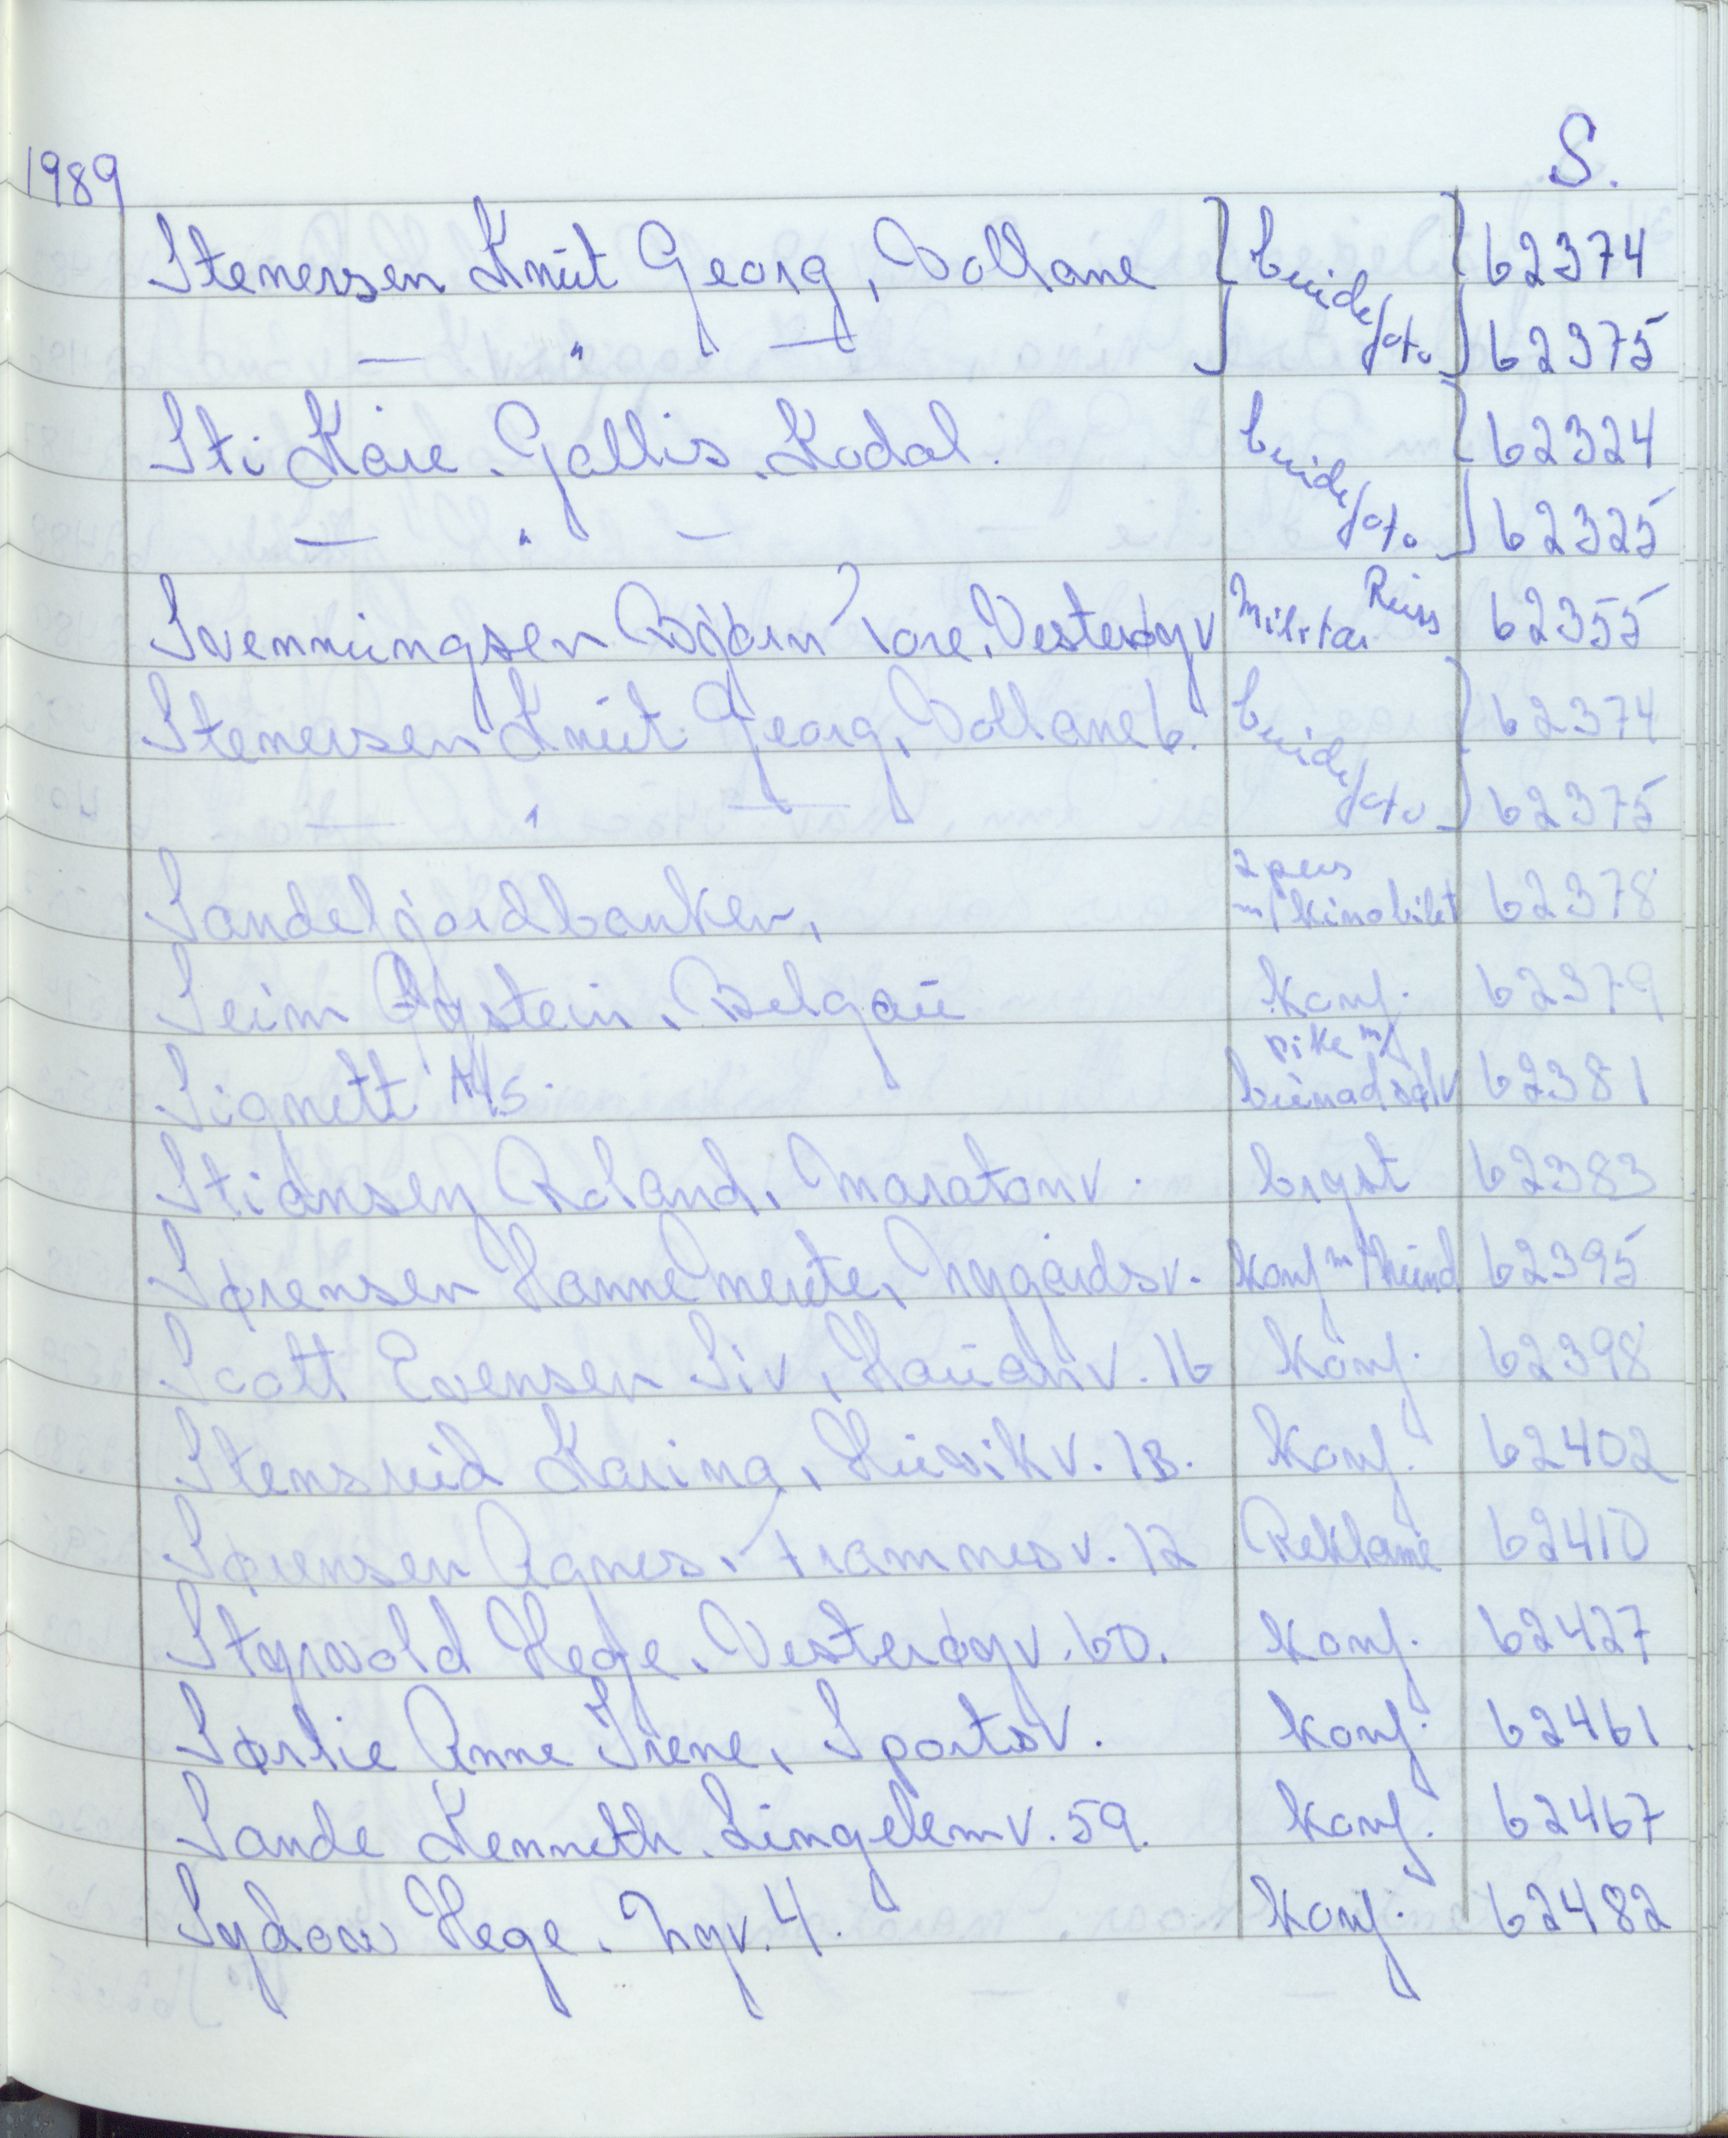 S.
1989
Stenersen Knut Georg, Vollane brude/ 62374
— " — foto 62375
Sti Kåre. Gallis. Kodal. brude/ 62324
— " — foto 62325
Svenningsen Bjørn Tore. Vesterøyv Militær Russ 62355
Stenersen Knut Georg, Vollane 6. brude/ 62374
— " — foto 62375
Sandefjordbanken, 2 pers m/kinobilet 62378
Seim Øystein. Belgau Konf. 62379
Signett A/S. pike m/ bunadsølv 62381
Stiansen Roland. Maratonv. bryst 62383
Sørensen Hanne Merete, Nygårdsv. Konf m/hund 62395
Scott Evensen Siv, Hauanv. 16 Konf. 62398
Stensrud Karina, Huvikv. 13. Konf. 62402
Sørensen Agnes. Framnesv. 12 Reklame 62410
Styrvold Hege. Vesterøyv. 60. Konf. 62427
Sørlie Anne Irene, Sportsv. Konf. 62461
Sande Kenneth. Lingelemv. 59. Konf. 62467
Sydow Hege. Nyv. 4. Konf. 62482